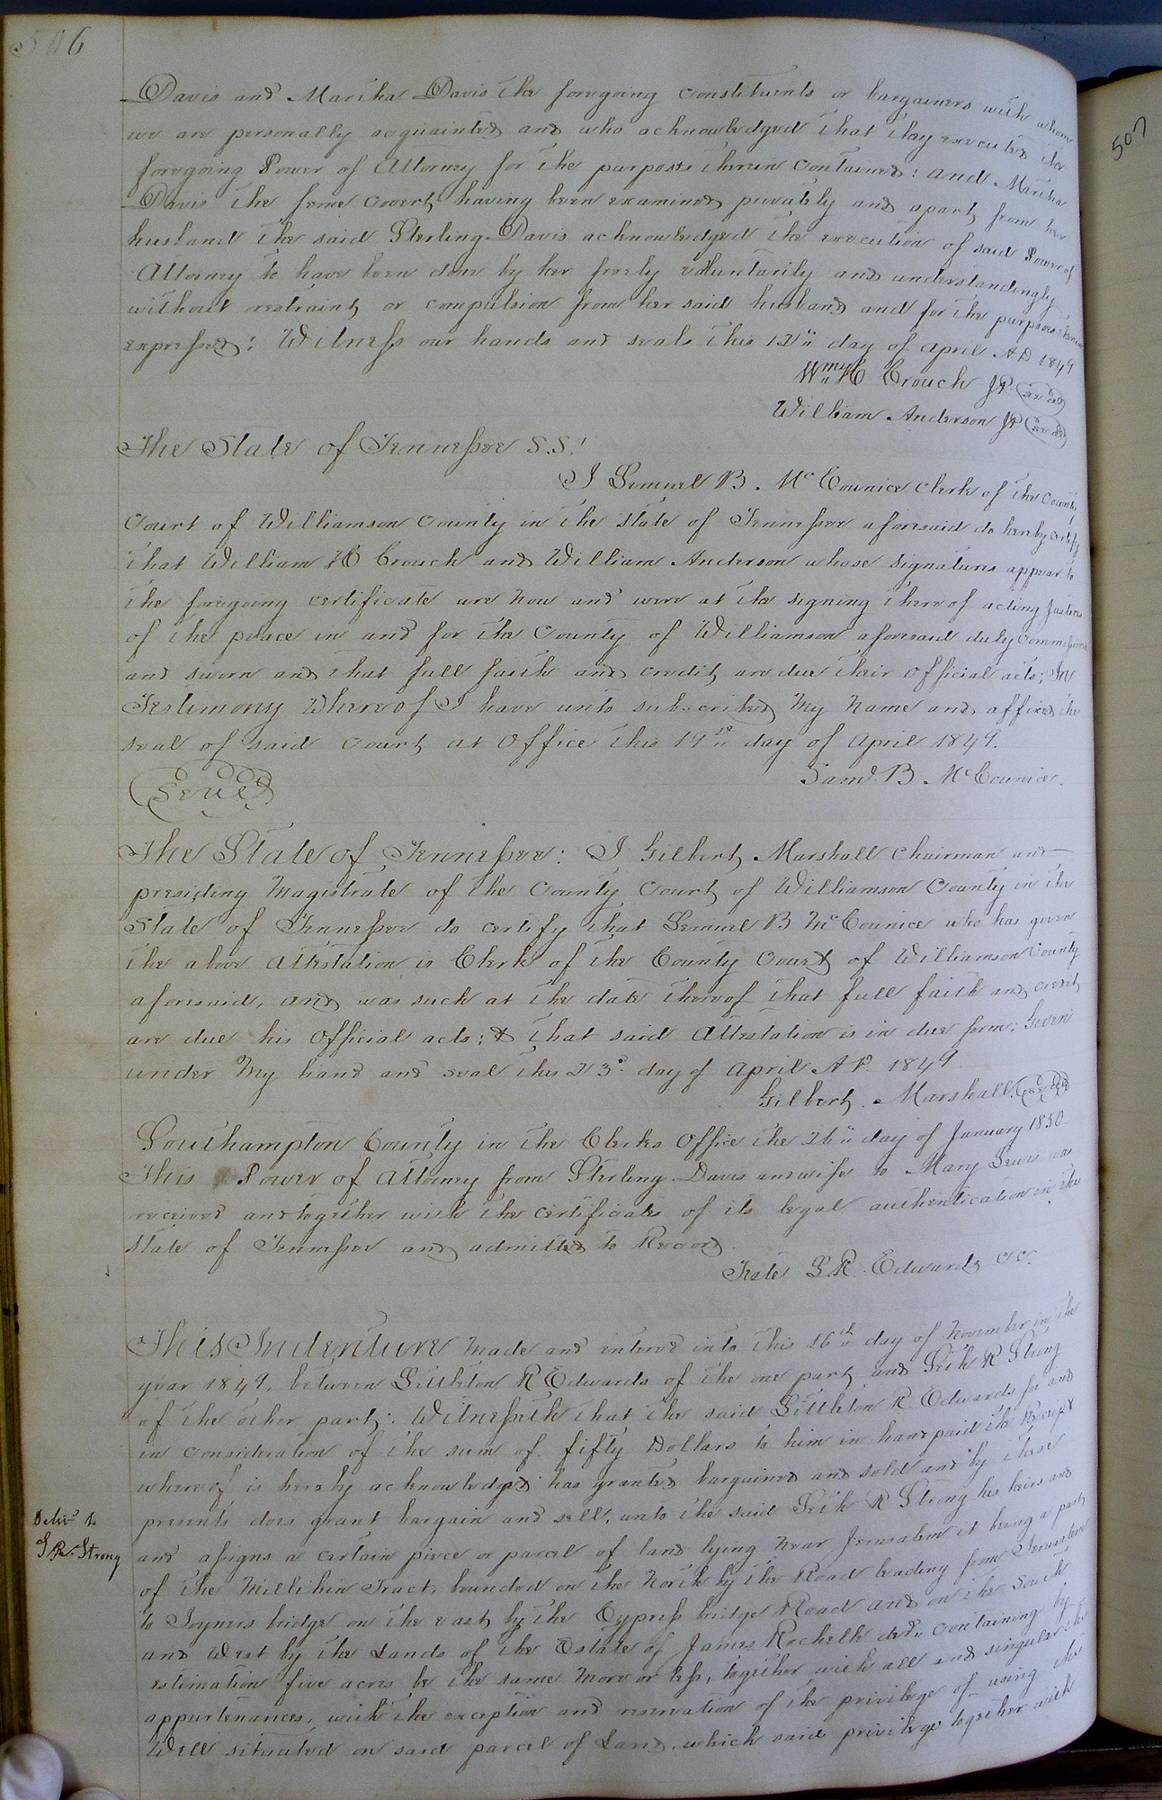 506
Davis and Martha Davis the foregoing constituents or bargainers with whom
we are personally acquainted and who acknowledged that they executed the
foregoing Power of Attorney for the purposes therein contained: and Martha
Davis the feme covert having been examined privately and apart from her
husband the said Sterling Davis acknowledged the execution of said Power of
Attorney to have been done by her freely voluntarily and understandingly
without restraint or compulsion from her said husband and for the purposes therein
expressed: Witness our hands and seals this 12th day of April AD 1849
Wm H Crouch JP (seal)
William Anderson JP (seal)
The State of Tennessee S.S.
I Lemuel B. McConnico clerk of the County
Court of Williamson County in the state of Tennessee aforesaid do hereby certify
that William H Crouch and William Anderson whose signatures appear to
the foregoing certificate are now and were at the signing thereof acting Justices
of the peace in and for the County of Williamson aforesaid duly commissioned
and sworn and that full faith and credit are due their official acts: In
Testimony whereof I have unto subscribed my name and affixed the
seal of said Court at Office this 19th day of April 1849.
B McCounico.
Seal
The State of Tennessee: I Gilbert Marshall Chairman and
presiding Magistrate of the County Court of Williamson County in the
State of Tennessee do certify that Lemuel B McCounico who has given
the above attestation is Clerk of the County Court of Williamson County
aforesaid, and was such at the date thereof that full faith and credit
are due his official acts; & that said Attestation is in due form. Given
under my hand and seal this 23d day of April AD. 1849
Gilbert Marshall (seal)
Southampton County in the Clerks Office the 26th day of January 1850
This Power of Attorney from Sterling Davis and wife to Mary Lewis was
received and together with the certificates of its legal authentication in the
State of Tennessee and admitted to Record
Teste L R Edwards CC.
This Indenture made and entered into this 16th day of November in the
year 1849, between Littleton R Edwards of the one part and Seth R Strong
of the other part: Witnesseth that the said Littleton R Edwards for and
in consideration of the sum of fifty Dollars to him in hand paid the Receipt
whereof is hereby acknowledged has granted bargained and sold and by these
presents does grant bargain and sell, unto the said Seth R Strong his heirs and
and assigns a certain piece or parcel of land lying near Jerusalem it being a part
of the Millikin Tract, bounded on the North by the Road leading from Jerusalem
to Joyners bridge on the east by the Cypress bridge Road and on the South
and West by the Lands of the Estate of James Rochelle decd. containing by
estimation five acres be the same more or less, together with all and singular the
appurtenances, with the exception and reservation of the privilege of using the
Well situated on said parcel of Land, which said privilege together with
Delivd to
S.R. Strong
507